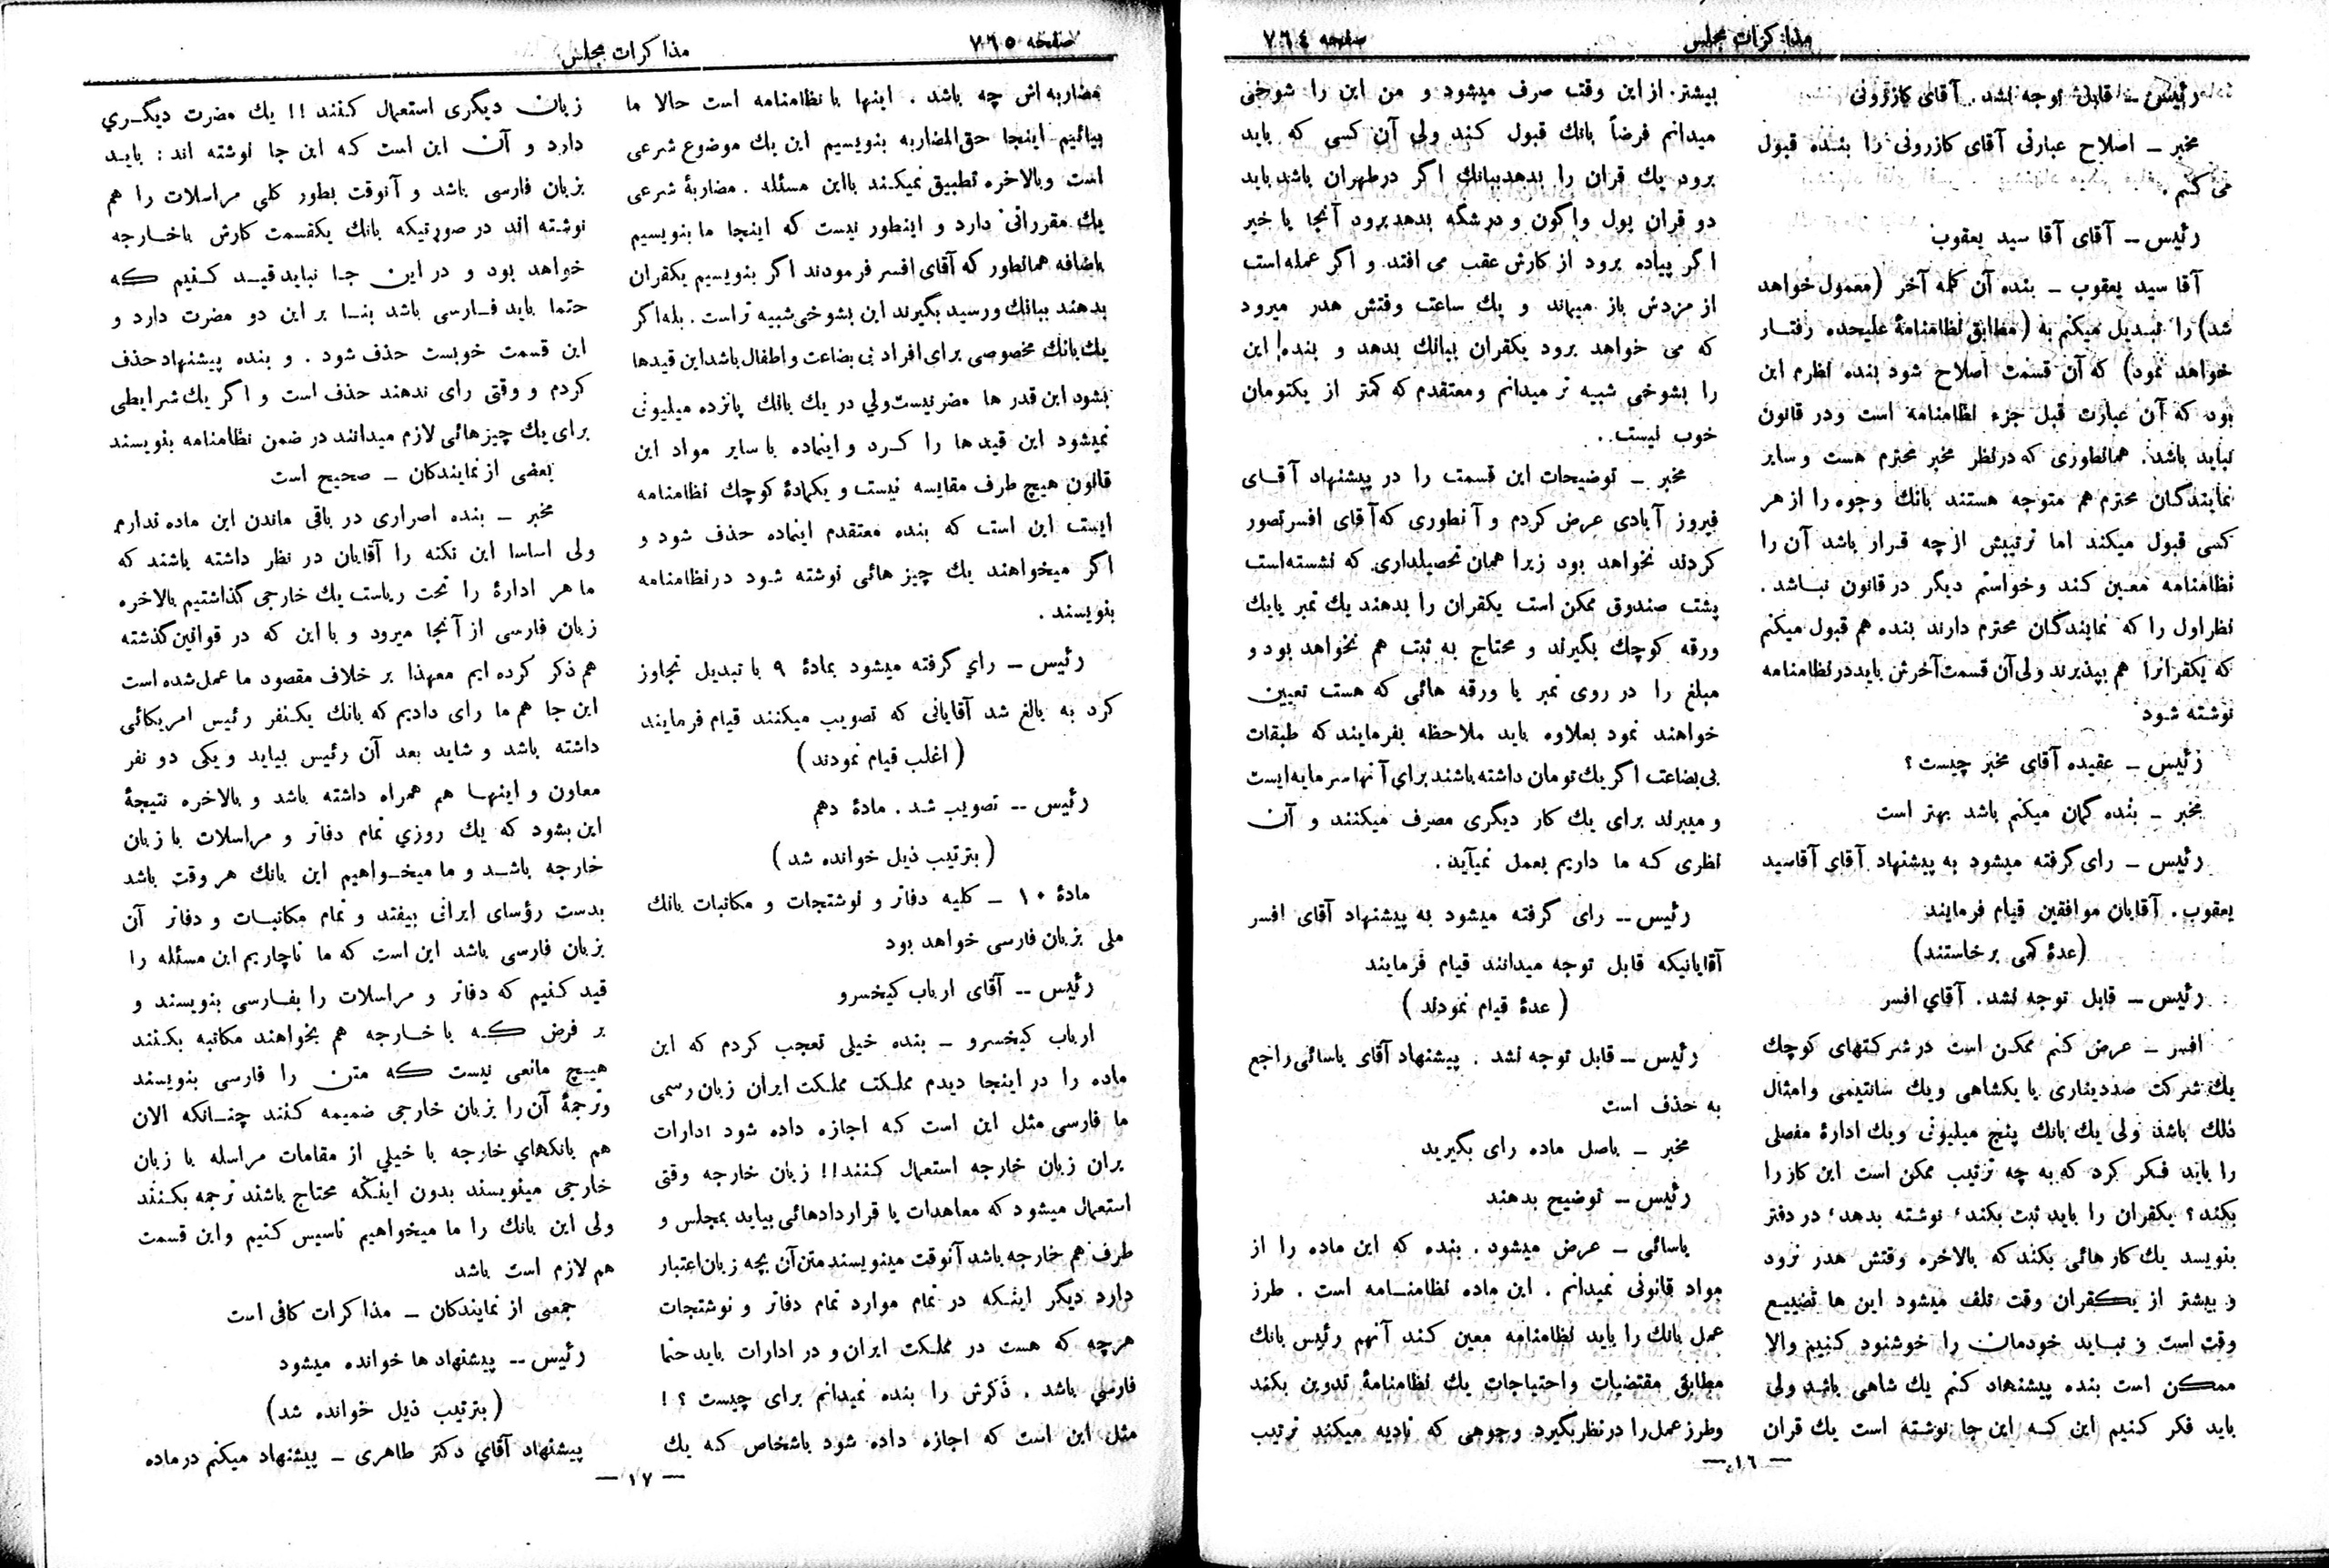 صفحه ٧٦٤
مذاكرات مجلس
رئيس ــ قابل توجه نشد . آقاى كازرونى
مخبر ــ اصلاح عبارتى آقاى كازرونى را بنده قبول
مى كنم .
رئيس ــ آقاى آقا سيد يعقوب
آقا سيد يعقوب ــ بنده آن كلمه آخر (معمول خواهد
شد) را تبديل ميكنم به (مطابق نظامنامهٔ عليحده رفتار
خواهد نمود) كه آن قسمت اصلاح شود بنده نظرم اين
بود كه آن عبارت قبل جزء نظامنامه است ودر قانون
نبايد باشد. همانطورى كه درنظر مخبر محترم هست و ساير
نمايندگان محترم هم متوجه هستند بانك وجوه را از هر
كسى قبول ميكند اما ترتيبش ازچه قرار باشد آن را
نظامنامه معين كند وخواستم ديگر در قانون نباشد .
نظراول را كه نمايندگان محترم دارند بنده هم قبول ميكنم
كه يكقرانرا هم بپذيرند ولى آن قسمت آخرش بايد درنظامنامه
نوشته شود
رئيس ــ عقيده آقاى مخبر چيست ؟
مخبر ــ بنده گمان ميكنم باشد بهتر است
رئيس ــ راى گرفته ميشود به پيشنهاد آقاى آقاسيد
يعقوب . آقايان موافقين قيام فرمايند
(عدهٔ كمى برخاستند)
رئيس ــ قابل توجه نشد . آقاي افسر
افسر ــ عرض كنم ممكن است در شركتهاى كوچك
يك شركت صددينارى يا يكشاهى ويك سانتيمى وامثال
ذلك باشد ولى يك بانك پنج ميليونى ويك ادارهٔ مفصلى
را بايد فكر كرد كه به چه ترتيب ممكن است اين كار را
بكند ؟ يكقران را بايد ثبت بكند ، نوشته بدهد ، در دفتر
بنويسد يك كار هائى بكند كه بالاخره وقتش هدر نرود
و بيشتر از يكقران وقت تلف ميشود اين ها تضييع
وقت است و نبايد خودمان را خوشنود كنيم والا
ممكن است بنده پيشنهاد كنم يك شاهى باشد ولى
بايد فكر كنيم اين كه اين جا نوشته است يك قران
بيشتر . از اين وقت صرف ميشود و من اين را شوخى
ميدانم فرضاً بانك قبول كند ولى آن كسى كه بايد
برود يك قران را بدهد ببانك اگر درطهران باشد بايد
دو قران پول واگون و درشگه بدهد برود آنجا يا خير
اگر پياده برود از كارش عقب مى افتد و اگر عمله است
از مزدش باز ميماند و يك ساعت وقتش هدر ميرود
كه مى خواهد برود يكقران ببانك بدهد و بنده اين
را بشوخى شبيه تر ميدانم ومعتقدم كه كمتر از يكتومان
خوب نيست .
مخبر ــ توضيحات اين قسمت را در پيشنهاد آقاى
فيروز آبادى عرض كردم و آنطورى كه آقاى افسر تصور
كردند نخواهد بود زيرا همان تحصيلدارى كه نشسته است
پشت صندوق ممكن است يكقران را بدهند يك تمبر يا يك
ورقه كوچك بگيرند و محتاج به ثبت هم نخواهد بود و
مبلغ را در روى تمبر يا ورقه هائى كه هست تعيين
خواهند نمود بعلاوه بايد ملاحظه بفرمايند كه طبقات
بى بضاعت اگر يك تومان داشته باشند براي آنها سرمايه ايست
و ميبرند براى يك كار ديگرى مصرف ميكنند و آن
نظرى كه ما داريم بعمل نميآيد .
رئيس ــ راى گرفته ميشود به پيشنهاد آقاى افسر
آقايانيكه قابل توجه ميدانند قيام فرمايند
( عدهٔ قيام نمودند )
رئيس ــ قابل توجه نشد . پيشنهاد آقاى ياسائى راجع
به حذف است
مخبر ــ باصل ماده راى بگيريد
رئيس ــ توضيح بدهند
ياسائى ــ عرض ميشود . بنده كه اين ماده را از
مواد قانونى نميدانم . اين ماده نظامنامه است . طرز
عمل بانك را بايد نظامنامه معين كند آنهم رئيس بانك
مطابق مقتضيات واحتياجات يك نظامنامهٔ تدوين بكند
وطرز عمل را درنظر بگيرد وجوهى كه تاديه ميكند ترتيب
ــ ١٦ ــ
صفحه ٧٦٥
مذاكرات مجلس
مضاربه اش چه باشد . اينها با نظامنامه است حالا ما
بيائيم اينجا حق المضاربه بنويسيم اين يك موضوع شرعى
است وبالاخره تطبيق نميكند بااين مسئله . مضاربهٔ شرعى
يك مقرراتى دارد و اينطور نيست كه اينجا ما بنويسيم
باضافه همانطور كه آقاى افسر فرمودند اگر بنويسيم يكقران
بدهند ببانك ورسيد بگيرند اين بشوخى شبيه تر است . بله اگر
يك بانك مخصوصى براى افراد بى بضاعت و اطفال باشد اين قيدها
بشود اين قدر ها مضر نيست ولي در يك بانك پانزده ميليونى
نميشود اين قيدها را كرد و اينماده با ساير مواد اين
قانون هيچ طرف مقايسه نيست و يكمادهٔ كوچك نظامنامه
ايست اين است كه بنده معتقدم اينماده حذف شود و
اگر ميخواهند يك چيز هائى نوشته شود درنظامنامه
بنويسند .
رئيس ــ راي گرفته ميشود بمادهٔ ٩ با تبديل تجاوز
كرد به بالغ شد آقايانى كه تصويب ميكنند قيام فرمايند
( اغلب قيام نمودند )
رئيس ــ تصويب شد . مادهٔ دهم
( بترتيب ذيل خوانده شد )
مادهٔ ١٠ ــ كليه دفاتر و نوشتجات و مكاتبات بانك
ملى بزبان فارسى خواهد بود
رئيس ــ آقاى ارباب كيخسرو
ارباب كيخسرو ــ بنده خيلى تعجب كردم كه اين
ماده را در اينجا ديدم مملكت مملكت ايران زبان رسمى
ما فارسى مثل اين است كه اجازه داده شود ادارات
يران زبان خارجه استعمال كنند!! زبان خارجه وقتى
استعمال ميشود كه معاهدات يا قراردادهائى بيايد بمجلس و
طرف هم خارجه باشد آنوقت مينويسند متن آن بچه زبان اعتبار
دارد ديگر اينكه در تمام موارد تمام دفاتر و نوشتجات
هرچه كه هست در مملكت ايران و در ادارات بايد حتما
فارسي باشد . ذكرش را بنده نميدانم براى چيست ؟ !
مثل اين است كه اجازه داده شود باشخاص كه يك
زبان ديگرى استعمال كنند !! يك مضرت ديگري
دارد و آن اين است كه اين جا نوشته اند : بايد
بزبان فارسى باشد و آنوقت بطور كلي مراسلات را هم
نوشته اند در صورتيكه بانك يكقسمت كارش باخارجه
خواهد بود و در اين جا نبايد قيد كنيم كه
حتما بايد فارسى باشد بنا بر اين دو مضرت دارد و
اين قسمت خوبست حذف شود . و بنده پيشنهاد حذف
كردم و وقتى راى ندهند حذف است و اگر يك شرايطى
براى يك چيزهائى لازم ميدانند در ضمن نظامنامه بنويسند
بعضى از نمايندگان ــ صحيح است
مخبر ــ بنده اصرارى در باقى ماندن اين ماده ندارم
ولى اساسا اين نكته را آقايان در نظر داشته باشند كه
ما هر ادارهٔ را تحت رياست يك خارجى گذاشتيم بالاخره
زبان فارسى از آنجا ميرود و با اين كه در قوانين گذشته
هم ذكر كرده ايم معهذا بر خلاف مقصود ما عمل شده است
اين جا هم ما راى داديم كه بانك يكنفر رئيس امريكائى
داشته باشد و شايد بعد آن رئيس بيايد و يكى دو نفر
معاون و اينها هم همراه داشته باشد و بالاخره نتيجهٔ
اين بشود كه يك روزي تمام دفاتر و مراسلات با زبان
خارجه باشد و ما ميخواهيم اين بانك هر وقت باشد
بدست رؤساى ايرانى بيفتد و تمام مكاتبات و دفاتر آن
بزبان فارسى باشد اين است كه ما ناچاريم اين مسئله را
قيد كنيم كه دفاتر و مراسلات را بفارسى بنويسند و
بر فرض كه با خارجه هم بخواهند مكاتبه بكنند
هيچ مانعى نيست كه متن را فارسى بنويسند
وترجمهٔ آن را بزبان خارجى ضميمه كنند چنانكه الان
هم بانكهاي خارجه با خيلي از مقامات مراسله با زبان
خارجى مينويسند بدون اينكه محتاج باشند ترجمه بكنند
ولى اين بانك را ما ميخواهيم تاسيس كنيم واين قسمت
هم لازم است باشد
جمعى از نمايندگان ــ مذاكرات كافى است
رئيس ــ پيشنهاد ها خوانده ميشود
( بترتيب ذيل خوانده شد )
پيشنهاد آقاي دكتر طاهرى ــ پيشنهاد ميكنم درماده
ــ ١٧ ــ